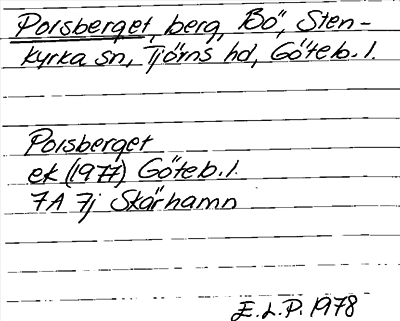 Porsberget, berg, Bö, Sten-
kyrka sn, Tjörns hd, Göteb. l.
Porsberget
ek (1977) Göteb. l.
7A 7j Skärhamn
E. L. P. 1978